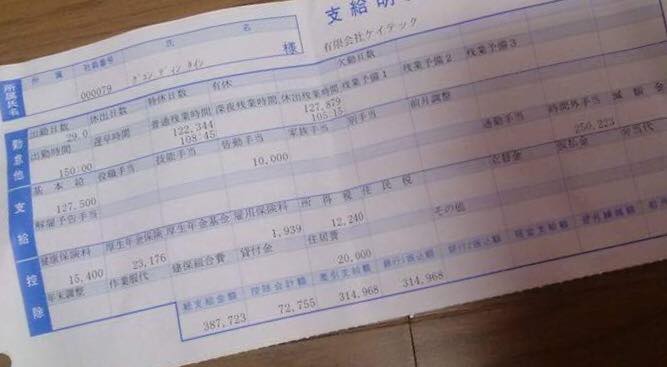 支給明
有限会社ケイテック
所属 社員番号 氏 名
000079 グエン ディン タイン 様
所属氏名
勤怠他
出勤日数 休出日数 特休日数 有休 欠勤日数
29.0
出勤時間 遅早時間 普通残業時間 深夜残業時間 休出残業時間 残業予備1 残業予備2 残業予備3
150:00 108:45 105:15
122,344 127,879
支給
基本給 役職手当 技能手当 皆勤手当 家族手当 別手当 前月調整 通勤手当 時間外手当 減額金
127,500 10,000 250,223
解雇予告手当
控除
健康保険料 厚生年金保険 厚生年金基金 雇用保険料 所得税 住民税 立替金 仮払金 弁当代
15,400 23,176 1,939 12,240
年末調整 作業服代 建保組合費 貸付金 住居費 その他
20,000
総支給金額 控除合計額 差引支給額 銀行1振込額 銀行2振込額 現金支給額
387,723 72,755 314,968 314,968